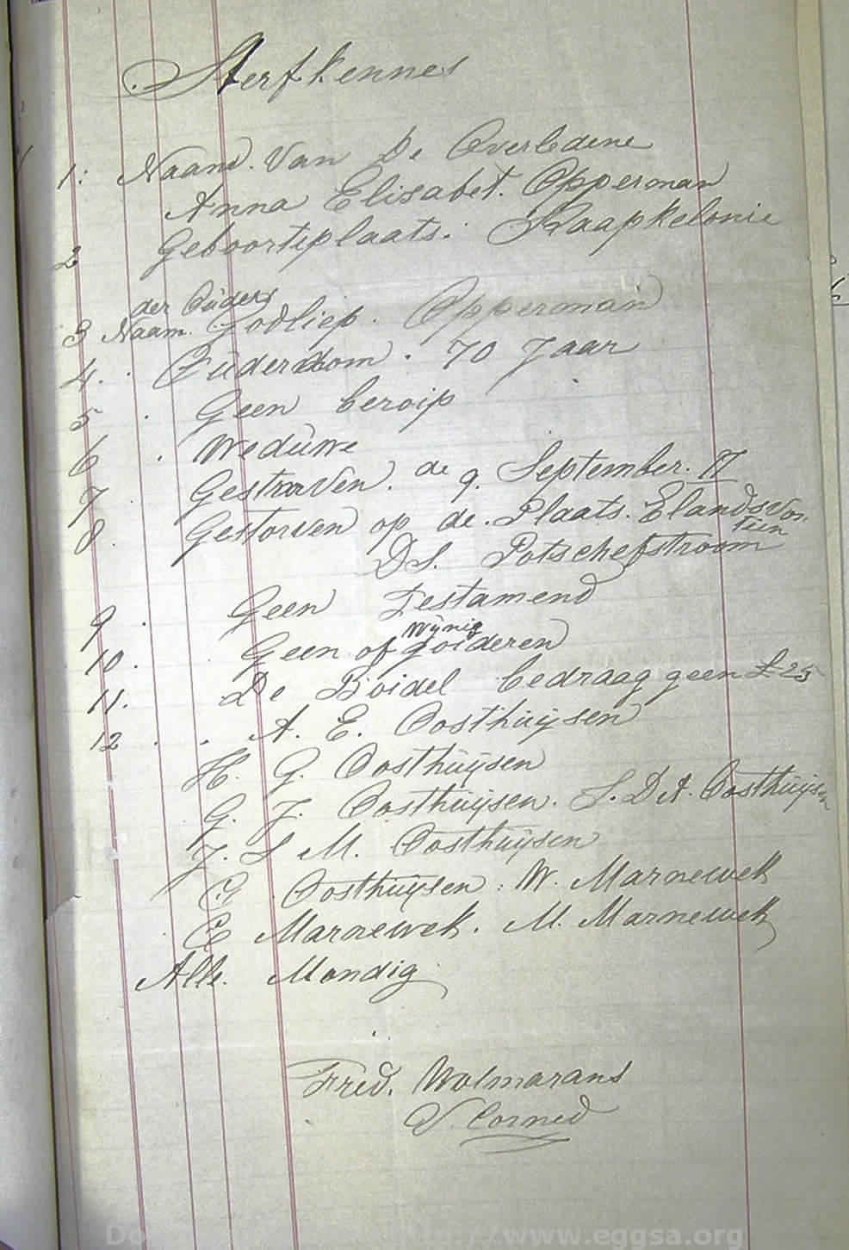 Sterfkennes
1: Naam. Van De Overledene
Anna Elisabet. Opperman
2 Geboorteplaats. Kaapkelonie
der Ouders
3 Naam. Godliep. Opperman
4. Ouderdom. 70 Jaar
5. Geen beroip
6. Weduwe
7. Gestorven. de 9. September. 17
8. Gestorven op de. Plaats. Elandsvon
tein
DS. Potschefstroom
9. Geen Testamend
wijnig
10. Geen of goideren
11. De Boidel bedraag geen £25
12. A. E. Oosthuijsen
H. G. Oosthuijsen
G. J. Oosthuijsen. S. D A. Oosthuijsen
J. S M. Oosthuijsen
C Oosthuijsen. W. Marnewek
C Marnewek. M. Marnewek
Alle. Mondig
Fred. Wolmarans
V. Corned
://www.eggsa.org